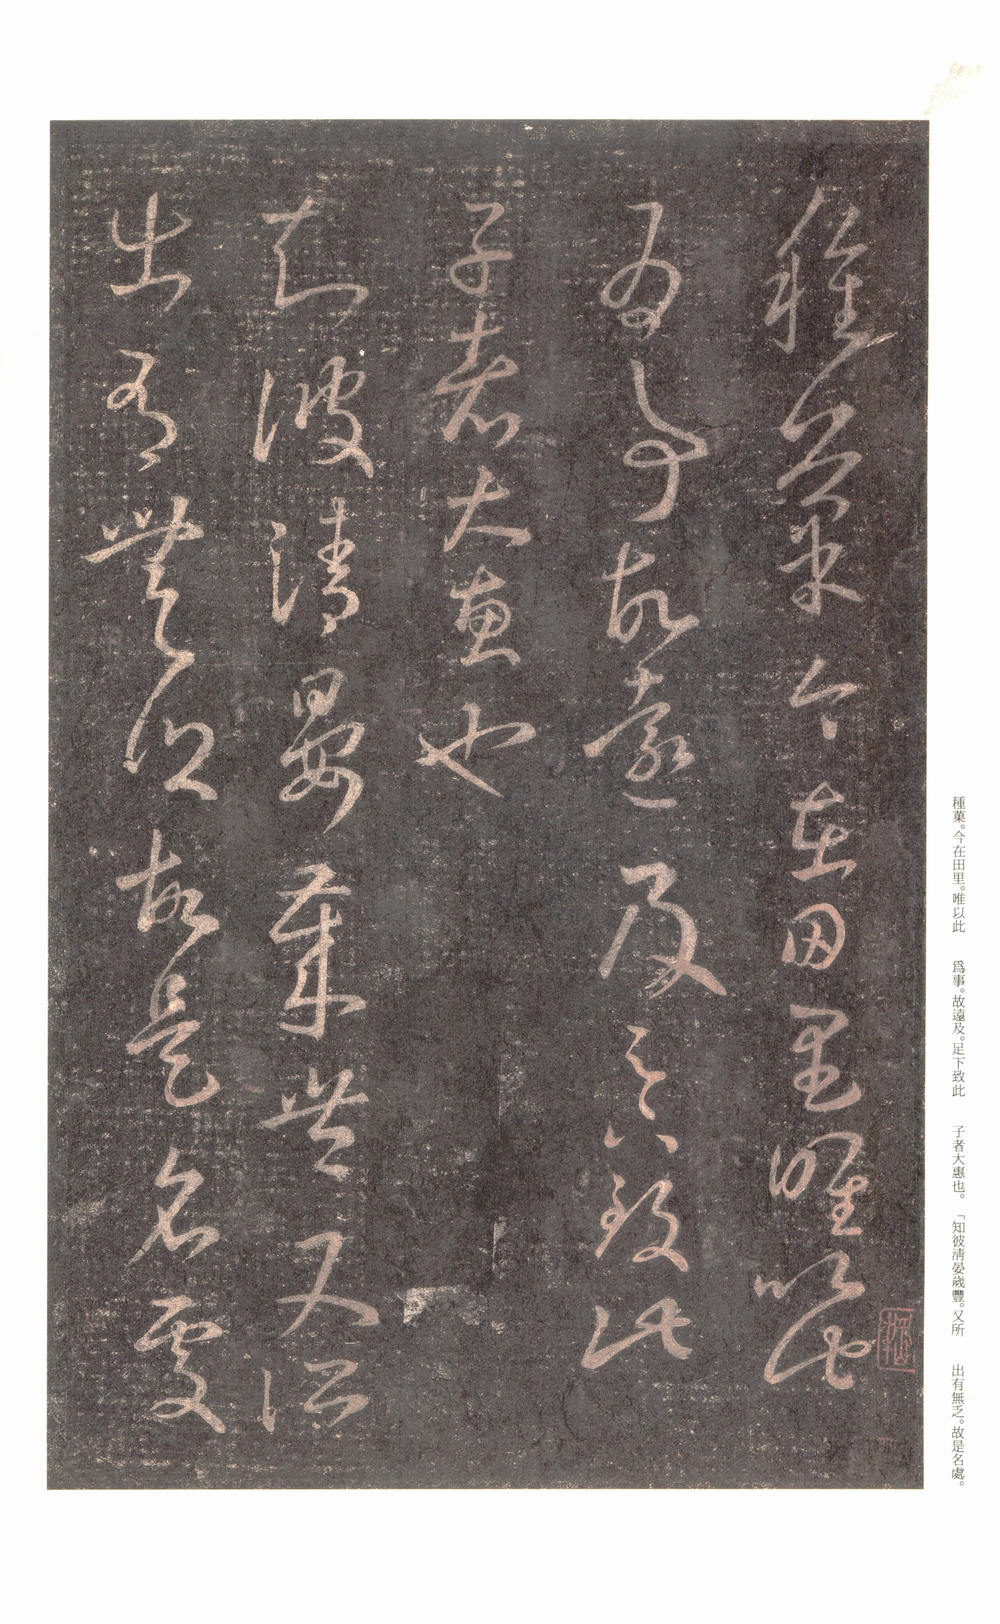 種菓今在田里唯以此
爲事故遠及足下致此
子者大惠也
知彼清晏歲豐又所
出有無乏故是名處
種菓。今在田里。唯以此　爲事。故遠及。足下致此　子者大惠也。　「知彼清晏歲豐。又所　出有無乏。故是名處。